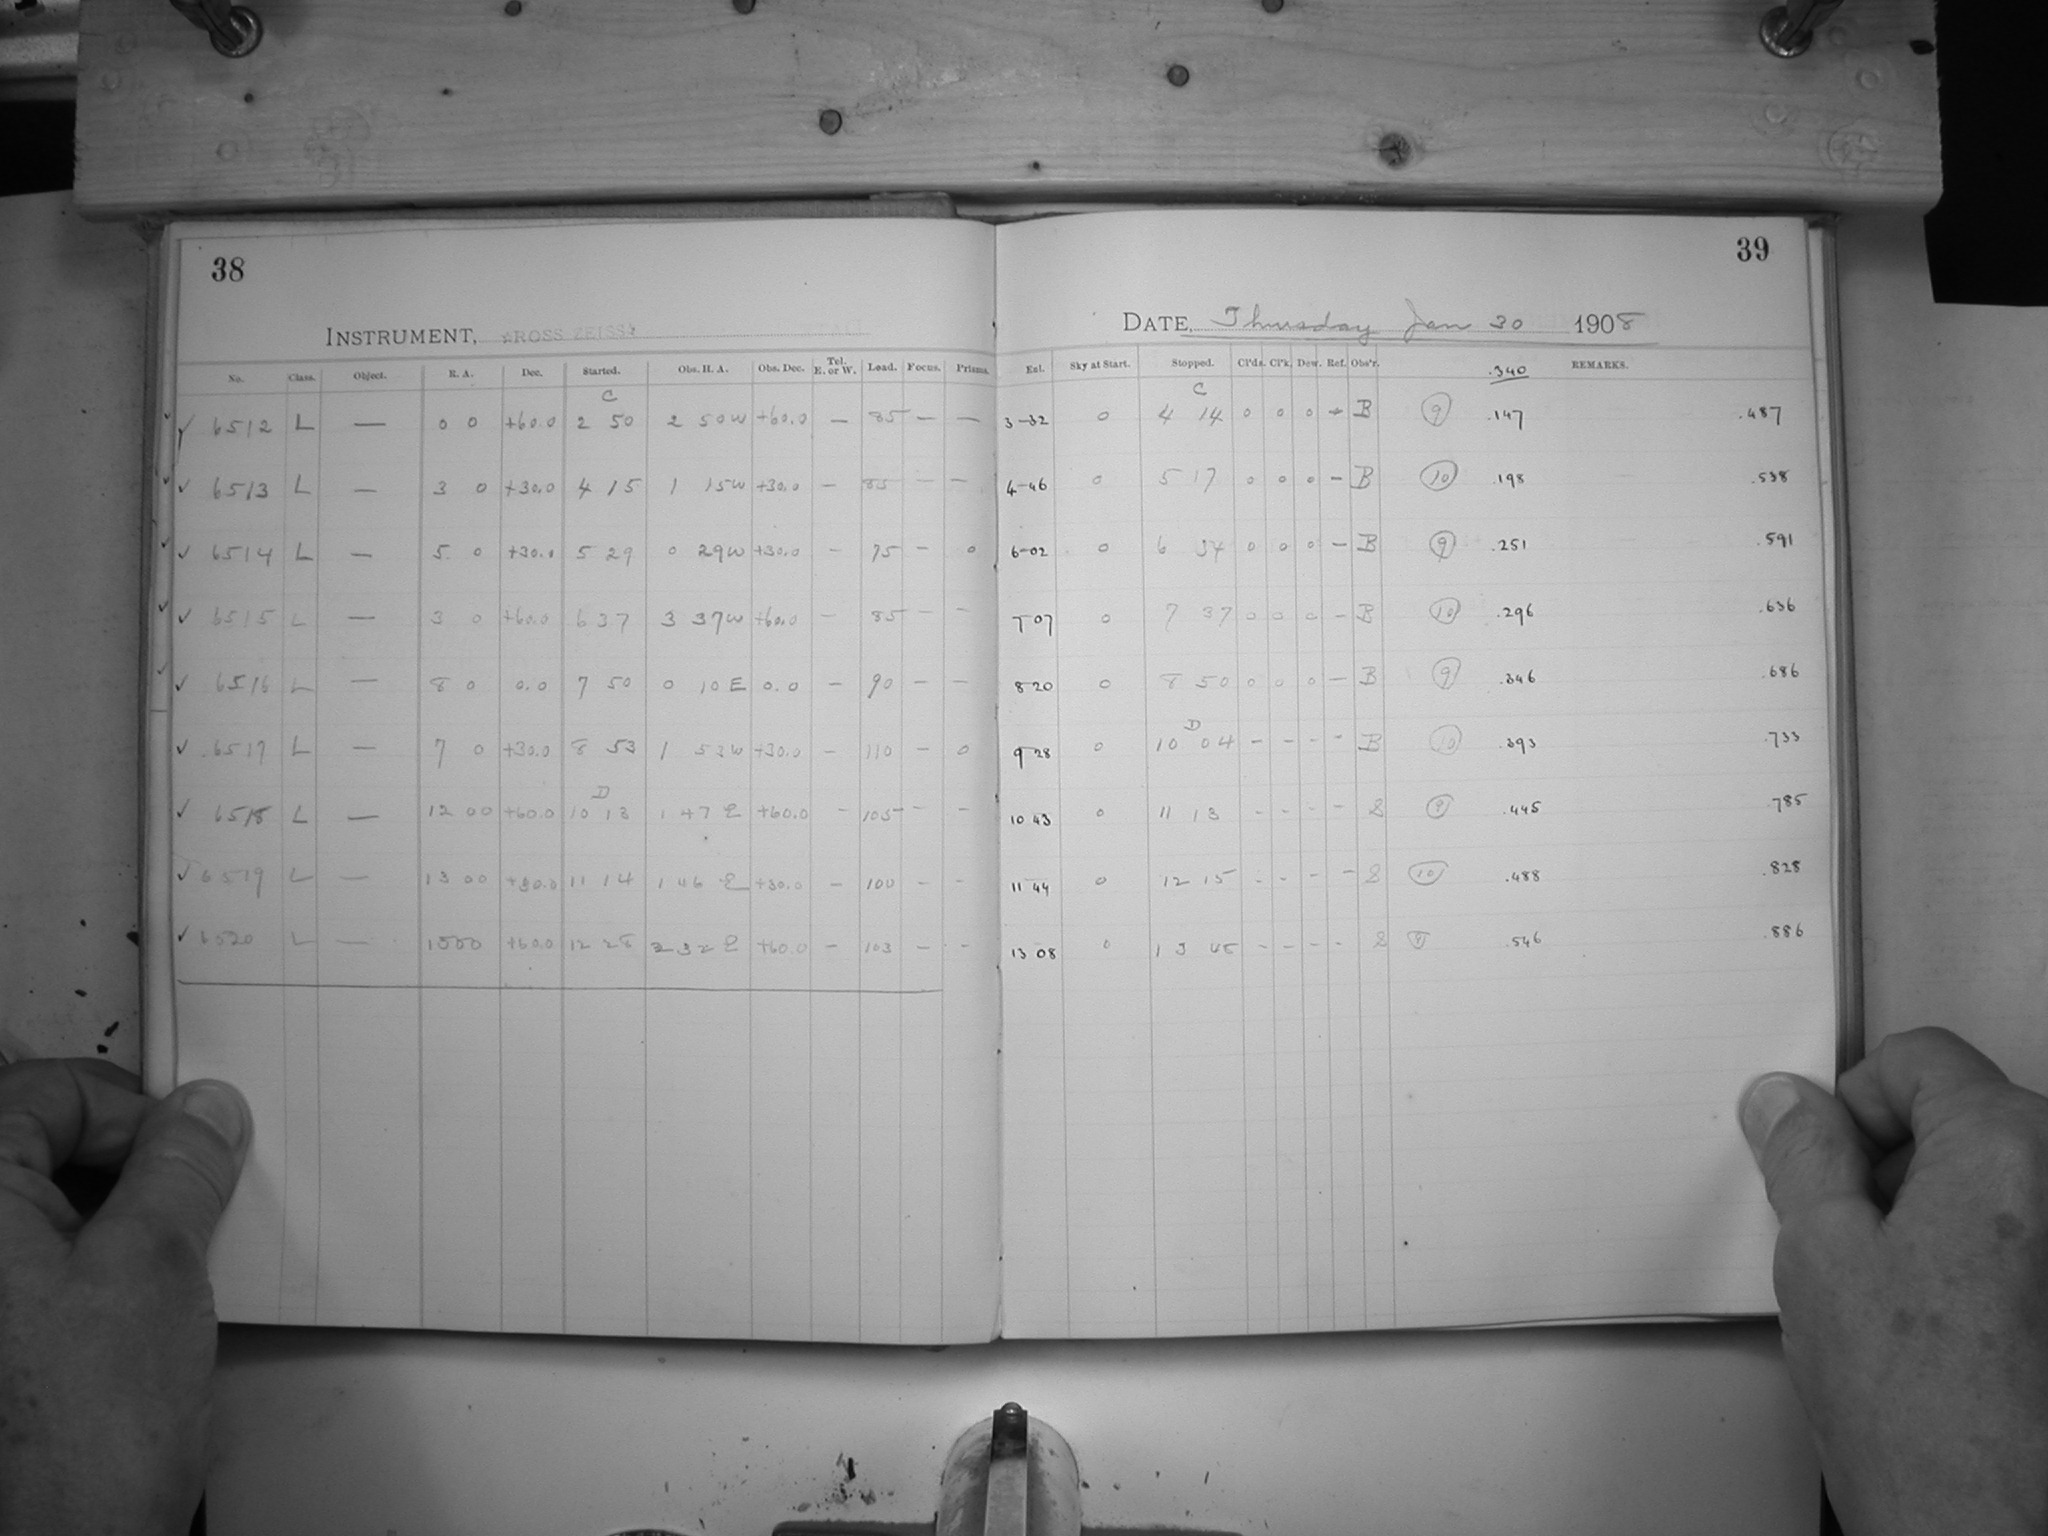 38
39
INSTRUMENT, ROSS ZEISS
DATE, Thursday Jan 30 1908
No. Class. Object. R. A. Dec. Started. Obs. H. A. Obs. Dec. Tel. E. or W. Lead. Focus. Prisms. Exl. Sky at Start. Stopped. Cl'ds. Cl'k. Dew. Ref. Obs'r. .340 REMARKS.
C C
✓ 6512 L — 0 0 +60.0 2 50 2 50W +60.0 — 85 — — 3-32 0 4 14 0 0 0 — B 9 .147 .487
✓ 6513 L — 3 0 +30.0 4 15 1 15W +30.0 — 85 — — 4-46 0 5 17 0 0 0 — B 10 .198 .538
✓ 6514 L — 5 0 +30.0 5 29 0 29W +30.0 — 75 — 0 6-02 0 6 34 0 0 0 — B 9 .251 .591
✓ 6515 L — 3 0 +60.0 6 37 3 37W +60.0 — 85 — — 7 07 0 7 37 0 0 0 — B 10 .296 .636
✓ 6516 L — 8 0 0.0 7 50 0 10E 0.0 — 90 — — 8 20 0 8 50 0 0 0 — B 9 .346 .686
D
✓ 6517 L — 7 0 +30.0 8 53 1 53W +30.0 — 110 — 0 9 28 0 10 04 — — — — B 10 .393 .733
D
✓ 6518 L — 12 00 +60.0 10 13 1 47 E +60.0 — 105 — — 10 43 0 11 13 — — — — S 9 .445 .785
✓ 6519 L — 13 00 +30.0 11 14 1 46 E +30.0 — 100 — — 11 44 0 12 15 — — — — S 10 .488 .828
✓ 6520 L — +60.0 12 28 2 32 E +60.0 — 103 — — 13 08 0 — — — — S .546 .886